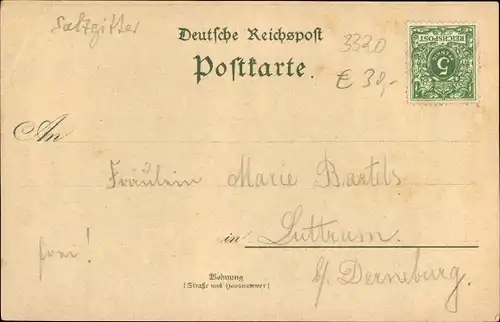 Salzgitter
Deutsche Reichspost
Postkarte.
3320
€ 38,-
REICHSPOST
5
PFENNIG
An
Fräulein Marie Bartels
in Luttrum.
frei!
b/ Derneburg.
Wohnung
(Straße und Hausnummer)